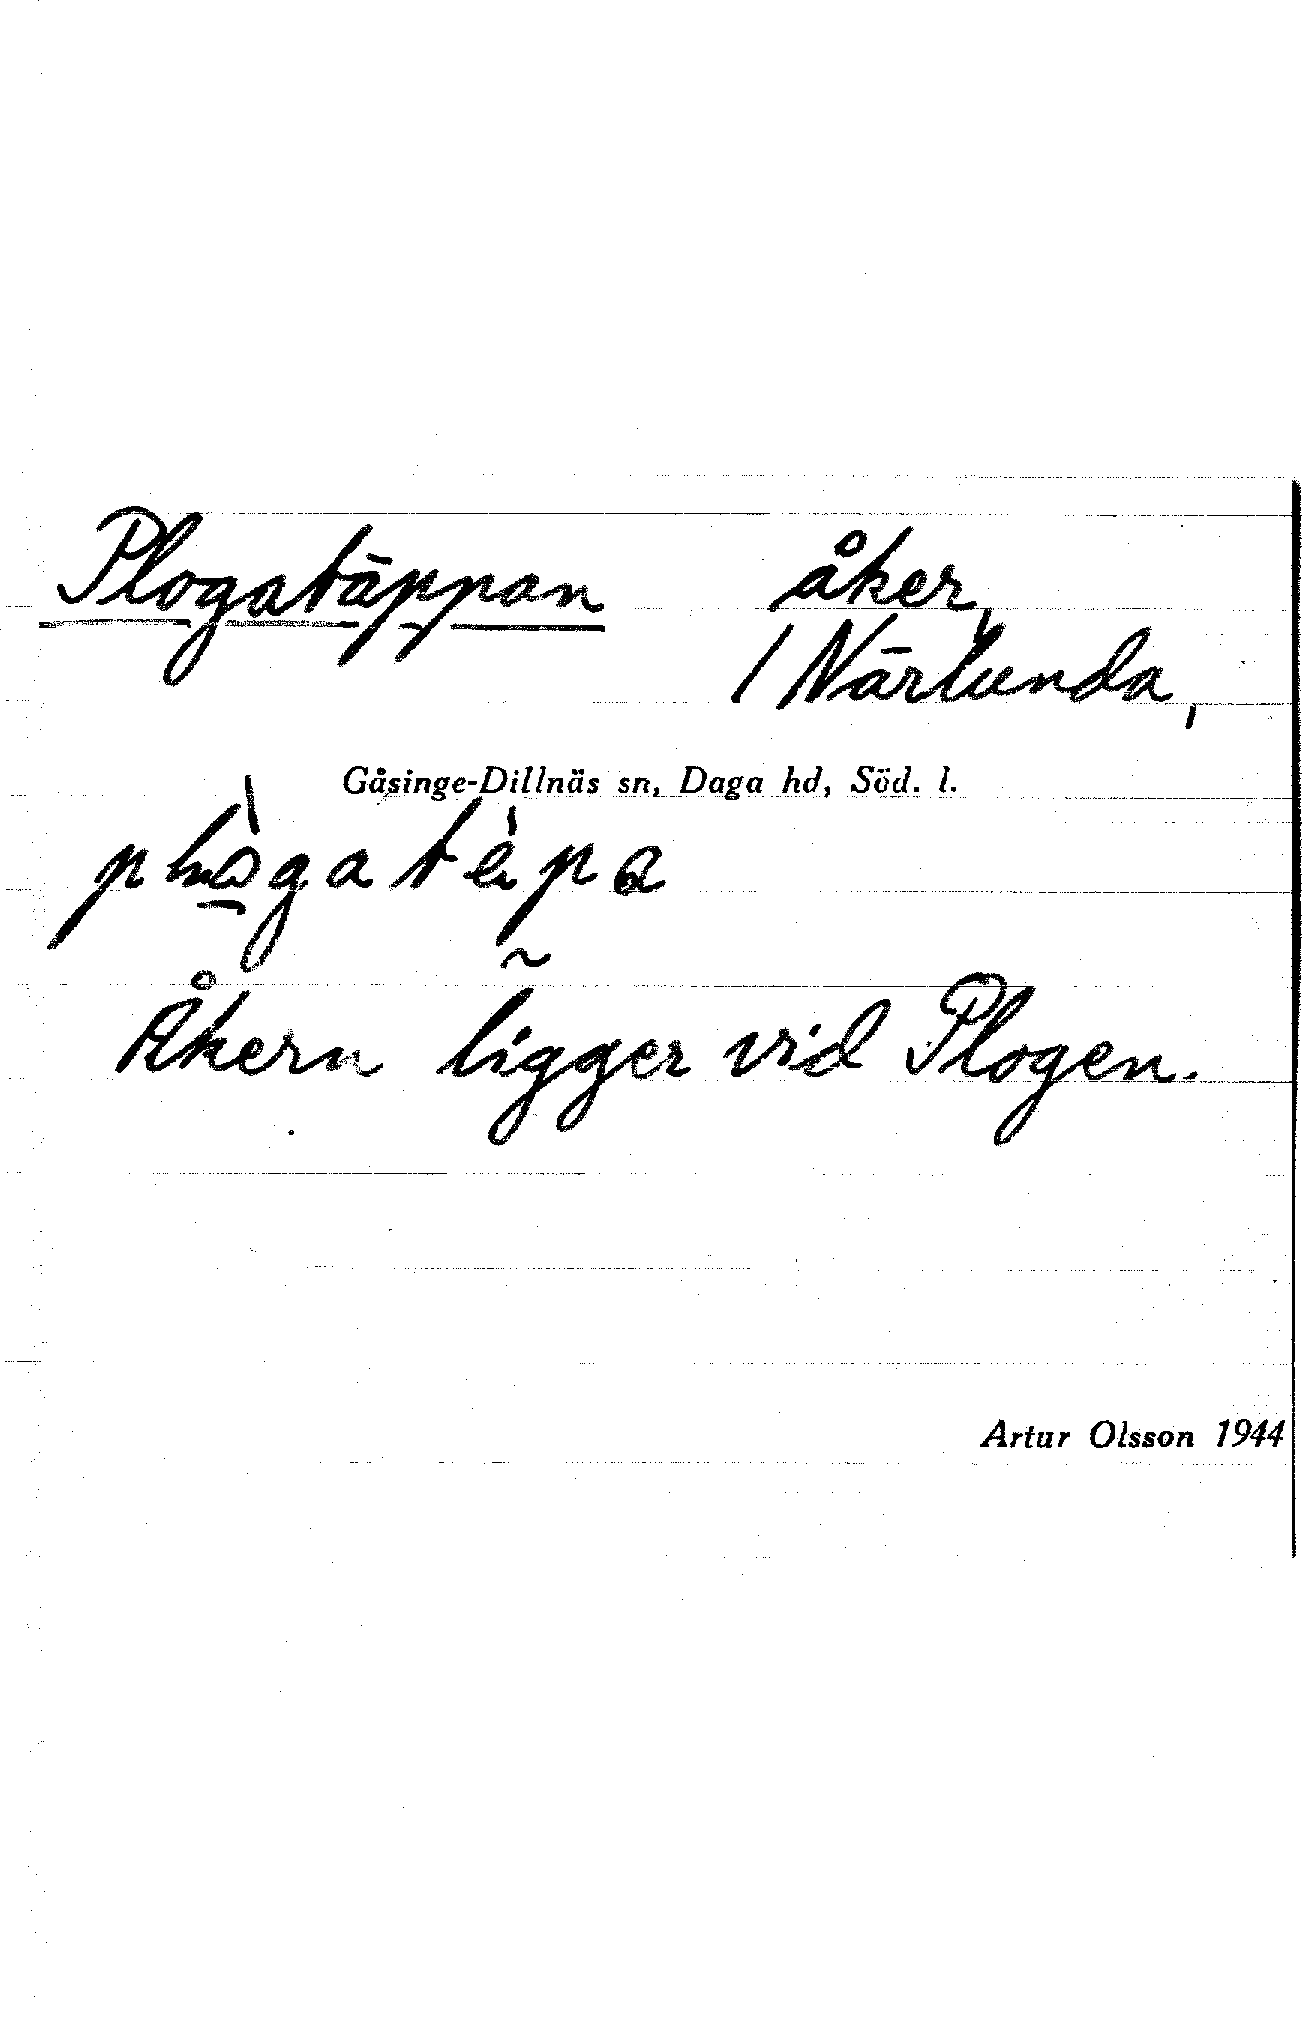 Plogatäppan åker,
/ Närlunda,
Gåsinge-Dillnäs sn, Daga hd, Söd. l.
Åkern ligger vid Plogen.
Artur Olsson 1944